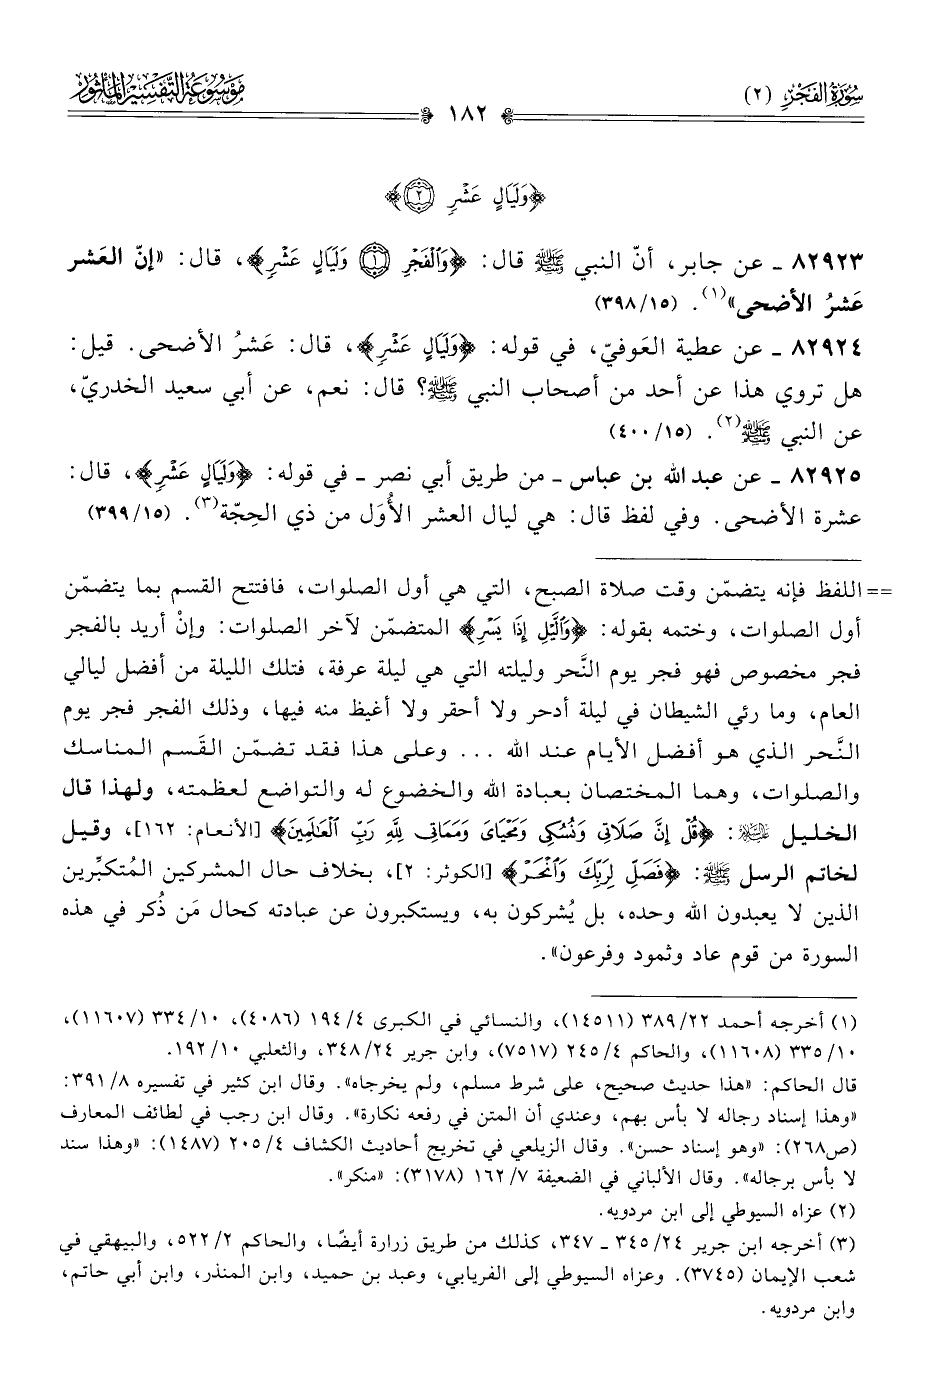 سُورَةُ الفَجْرِ (٢)
١٨٢
مَوْسُوعَةُ التَّفْسِيرِ المَأْثُورِ
﴿وَلَيَالٍ عَشْرٍ ٢﴾
٨٢٩٢٣ ـ عن جابر، أنّ النبي ﷺ قال: ﴿وَٱلْفَجْرِ ١ وَلَيَالٍ عَشْرٍ﴾، قال: «إنّ العَشر
عَشرُ الأضحى»(١). (٣٩٨/١٥)
٨٢٩٢٤ ـ عن عطية العَوفيّ، في قوله: ﴿وَلَيَالٍ عَشْرٍ﴾، قال: عَشرُ الأضحى. قيل:
هل تروي هذا عن أحد من أصحاب النبي ﷺ؟ قال: نعم، عن أبي سعيد الخدريّ،
عن النبي ﷺ(٢). (٤٠٠/١٥)
٨٢٩٢٥ ـ عن عبد الله بن عباس ـ من طريق أبي نصر ـ في قوله: ﴿وَلَيَالٍ عَشْرٍ﴾، قال:
عشرة الأضحى. وفي لفظ قال: هي ليال العشر الأُوَل من ذي الحِجّة(٣). (٣٩٩/١٥)
== اللفظ فإنه يتضمّن وقت صلاة الصبح، التي هي أول الصلوات، فافتتح القسم بما يتضمّن
أول الصلوات، وختمه بقوله: ﴿وَٱلَّيْلِ إِذَا يَسْرِ﴾ المتضمّن لآخر الصلوات: وإنْ أريد بالفجر
فجر مخصوص فهو فجر يوم النَّحر وليلته التي هي ليلة عرفة، فتلك الليلة من أفضل ليالي
العام، وما رئي الشيطان في ليلة أدحر ولا أحقر ولا أغيظ منه فيها، وذلك الفجر فجر يوم
النَّحر الذي هو أفضل الأيام عند الله ... وعلى هذا فقد تضمّن القَسم المناسك
والصلوات، وهما المختصان بعبادة الله والخضوع له والتواضع لعظمته، ولهذا قال
الخليل عليه السلام: ﴿قُلْ إِنَّ صَلَاتِى وَنُسُكِى وَمَحْيَاىَ وَمَمَاتِى لِلَّهِ رَبِّ ٱلْعَـٰلَمِينَ﴾ [الأنعام: ١٦٢]، وقيل
لخاتم الرسل ﷺ: ﴿فَصَلِّ لِرَبِّكَ وَٱنْحَرْ﴾ [الكوثر: ٢]، بخلاف حال المشركين المُتكبِّرين
الذين لا يعبدون الله وحده، بل يُشركون به، ويستكبرون عن عبادته كحال مَن ذُكر في هذه
السورة من قوم عاد وثمود وفرعون».
(١) أخرجه أحمد ٣٨٩/٢٢ (١٤٥١١)، والنسائي في الكبرى ١٩٤/٤ (٤٠٨٦)، ٣٣٤/١٠ (١١٦٠٧)،
٣٣٥/١٠ (١١٦٠٨)، والحاكم ٢٤٥/٤ (٧٥١٧)، وابن جرير ٣٤٨/٢٤، والثعلبي ١٩٢/١٠.
قال الحاكم: «هذا حديث صحيح، على شرط مسلم، ولم يخرجاه». وقال ابن كثير في تفسيره ٣٩١/٨:
«وهذا إسناد رجاله لا بأس بهم، وعندي أن المتن في رفعه نكارة». وقال ابن رجب في لطائف المعارف
(ص٢٦٨): «وهو إسناد حسن». وقال الزيلعي في تخريج أحاديث الكشاف ٢٠٥/٤ (١٤٨٧): «وهذا سند
لا بأس برجاله». وقال الألباني في الضعيفة ١٦٢/٧ (٣١٧٨): «منكر».
(٢) عزاه السيوطي إلى ابن مردويه.
(٣) أخرجه ابن جرير ٣٤٥/٢٤ ـ ٣٤٧، كذلك من طريق زرارة أيضًا، والحاكم ٥٢٢/٢، والبيهقي في
شعب الإيمان (٣٧٤٥). وعزاه السيوطي إلى الفريابي، وعبد بن حميد، وابن المنذر، وابن أبي حاتم،
وابن مردويه.